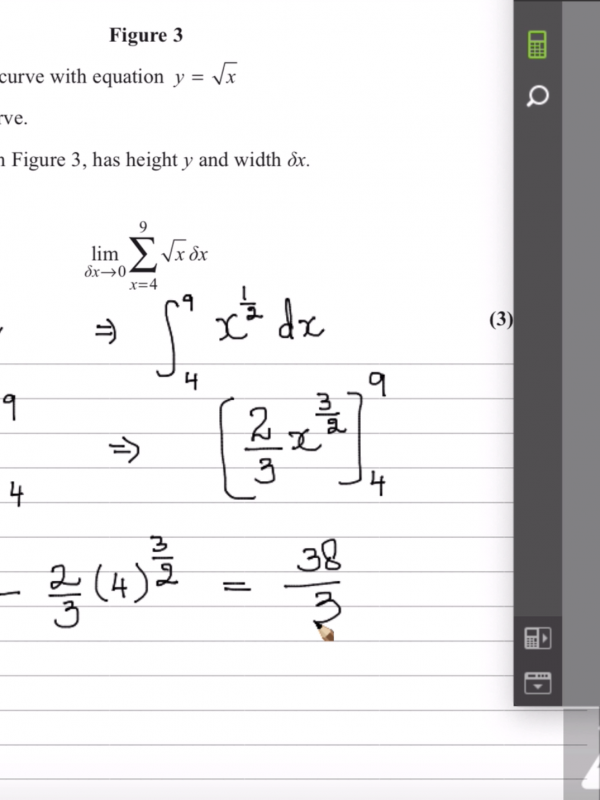 Figure 3
curve with equation y = √x
rve.
n Figure 3, has height y and width δx.
lim δx→0 ∑ x=4 9 √x δx
(3)
⇒ ∫ 4 9 x^(1/2) dx
9
4
⇒ [2/3 x^(3/2)] 4 9
− 2/3 (4)^(3/2) = 38/3